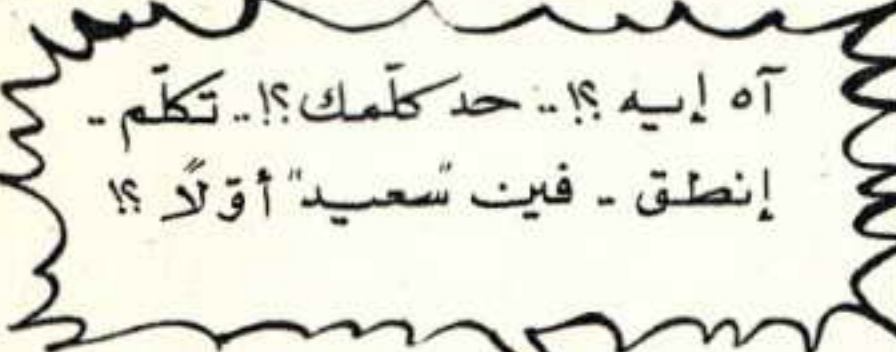 آه إيه ؟!.. حد كلّمك ؟!.. تكلّم ..
إنطق .. فين "سعيد" أوّلاً ؟!